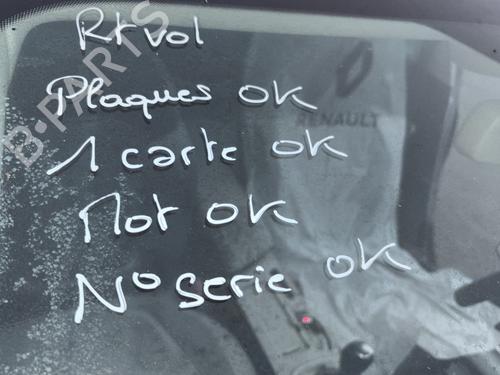 Rt vol
Plaques OK
1 carte OK
Mot OK
N° serie OK
RENAULT
B-PARTS